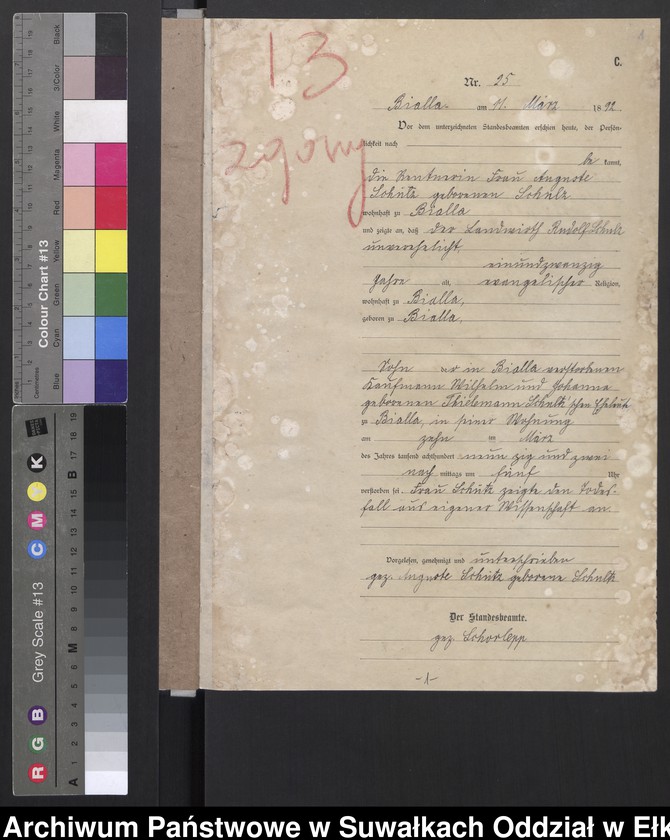 13
zgony
C.
Nr. 25
Bialla am 11. März 1892.
Vor dem unterzeichneten Standesbeamten erschien heute, der Persön-
lichkeit nach
be kannt,
die Rentnerin Frau Auguste
Schütz geborenen Schulz
wohnhaft zu Bialla
und zeigte an, daß der Landwirth Rudolf Schulz
unverehelicht,
einundzwanzig
Jahre alt, evangelischer Religion,
wohnhaft zu Bialla,
geboren zu Bialla,
Sohn der in Bialla verstorbenen
Kaufmann Wilhelm und Johanna
geborenen Thielemann Schultz'schen Eheleute
zu Bialla, in seiner Wohnung
am zehn im März
des Jahres tausend achthundert neunzig und zwei
nach mittags um fünf Uhr
verstorben sei. Frau Schütz zeigte den Todes-
fall aus eigener Wissenschaft an.
Vorgelesen, genehmigt und unterschrieben
gez. Auguste Schütz geborene Schultz
Der Standesbeamte.
gez. Schorlepp
-1-
Colour Chart #13
Blue
Cyan
Green
Yellow
Red
Magenta
White
3/Color
Black
Inches
Centimetres
Grey Scale #13
R G B
C M Y K
A 1 2 3 4 5 6 M 8 9 10 11 12 13 14 15 B 17 18 19
Archiwum Państwowe w Suwałkach Oddział w Ełk